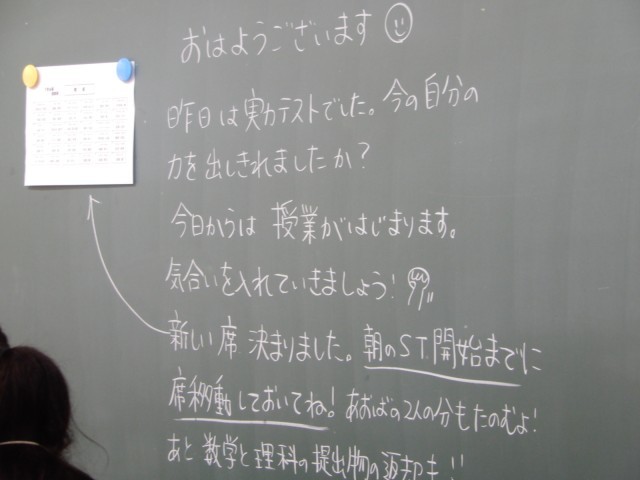 おはようございます
昨日は実力テストでした。今の自分の
力を出しきれましたか？
今日からは 授業がはじまります。
気合いを入れていきましょう！
新しい席 決まりました。朝のST開始までに
席移動しておいてね！ あおばの2人の分もたのむよ！
あと 数学と理科の提出物の返却も!!